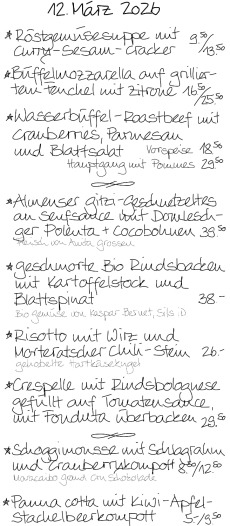 12. März 2026
* Röstgemüsesuppe mit 9.50
Curry-Sesam-Cracker /13.50
* Büffelmozzarella auf grillier-
tem Fenchel mit Zitrone 16.50
/25.50
* Wasserbüffel-Roastbeef mit
Cranberries, Parmesan
und Blattsalat Vorspeise 18.50
Hauptgang mit Pommes 29.50
* Almenser gitzi-Geschnetzeltes
an Senfsauce mit Domlesch-
ger Polenta + Cocobohnen 39.50
Fleisch von Anita Grossen
* geschmorte Bio Rindsbacken
mit Kartoffelstock und
Blattspinat 38.-
Bio gemüse von Kaspar Bernet, Sils i.D
* Risotto mit Wirz und
Morteratscher Chili-Stein 26.-
gehobelte Hartkäsekugel
* Crespelle mit Rindsbolognese
gefüllt auf Tomatensauce,
mit Fonduta überbacken 29.50
* Schoggimousse mit Schlagrahm
und Cranberrykompott 8.50/12.50
Maracaibo grand cru Schokolade
* Panna cotta mit Kiwi-Apfel-
Stachelbeerkompott 5.-/9.50